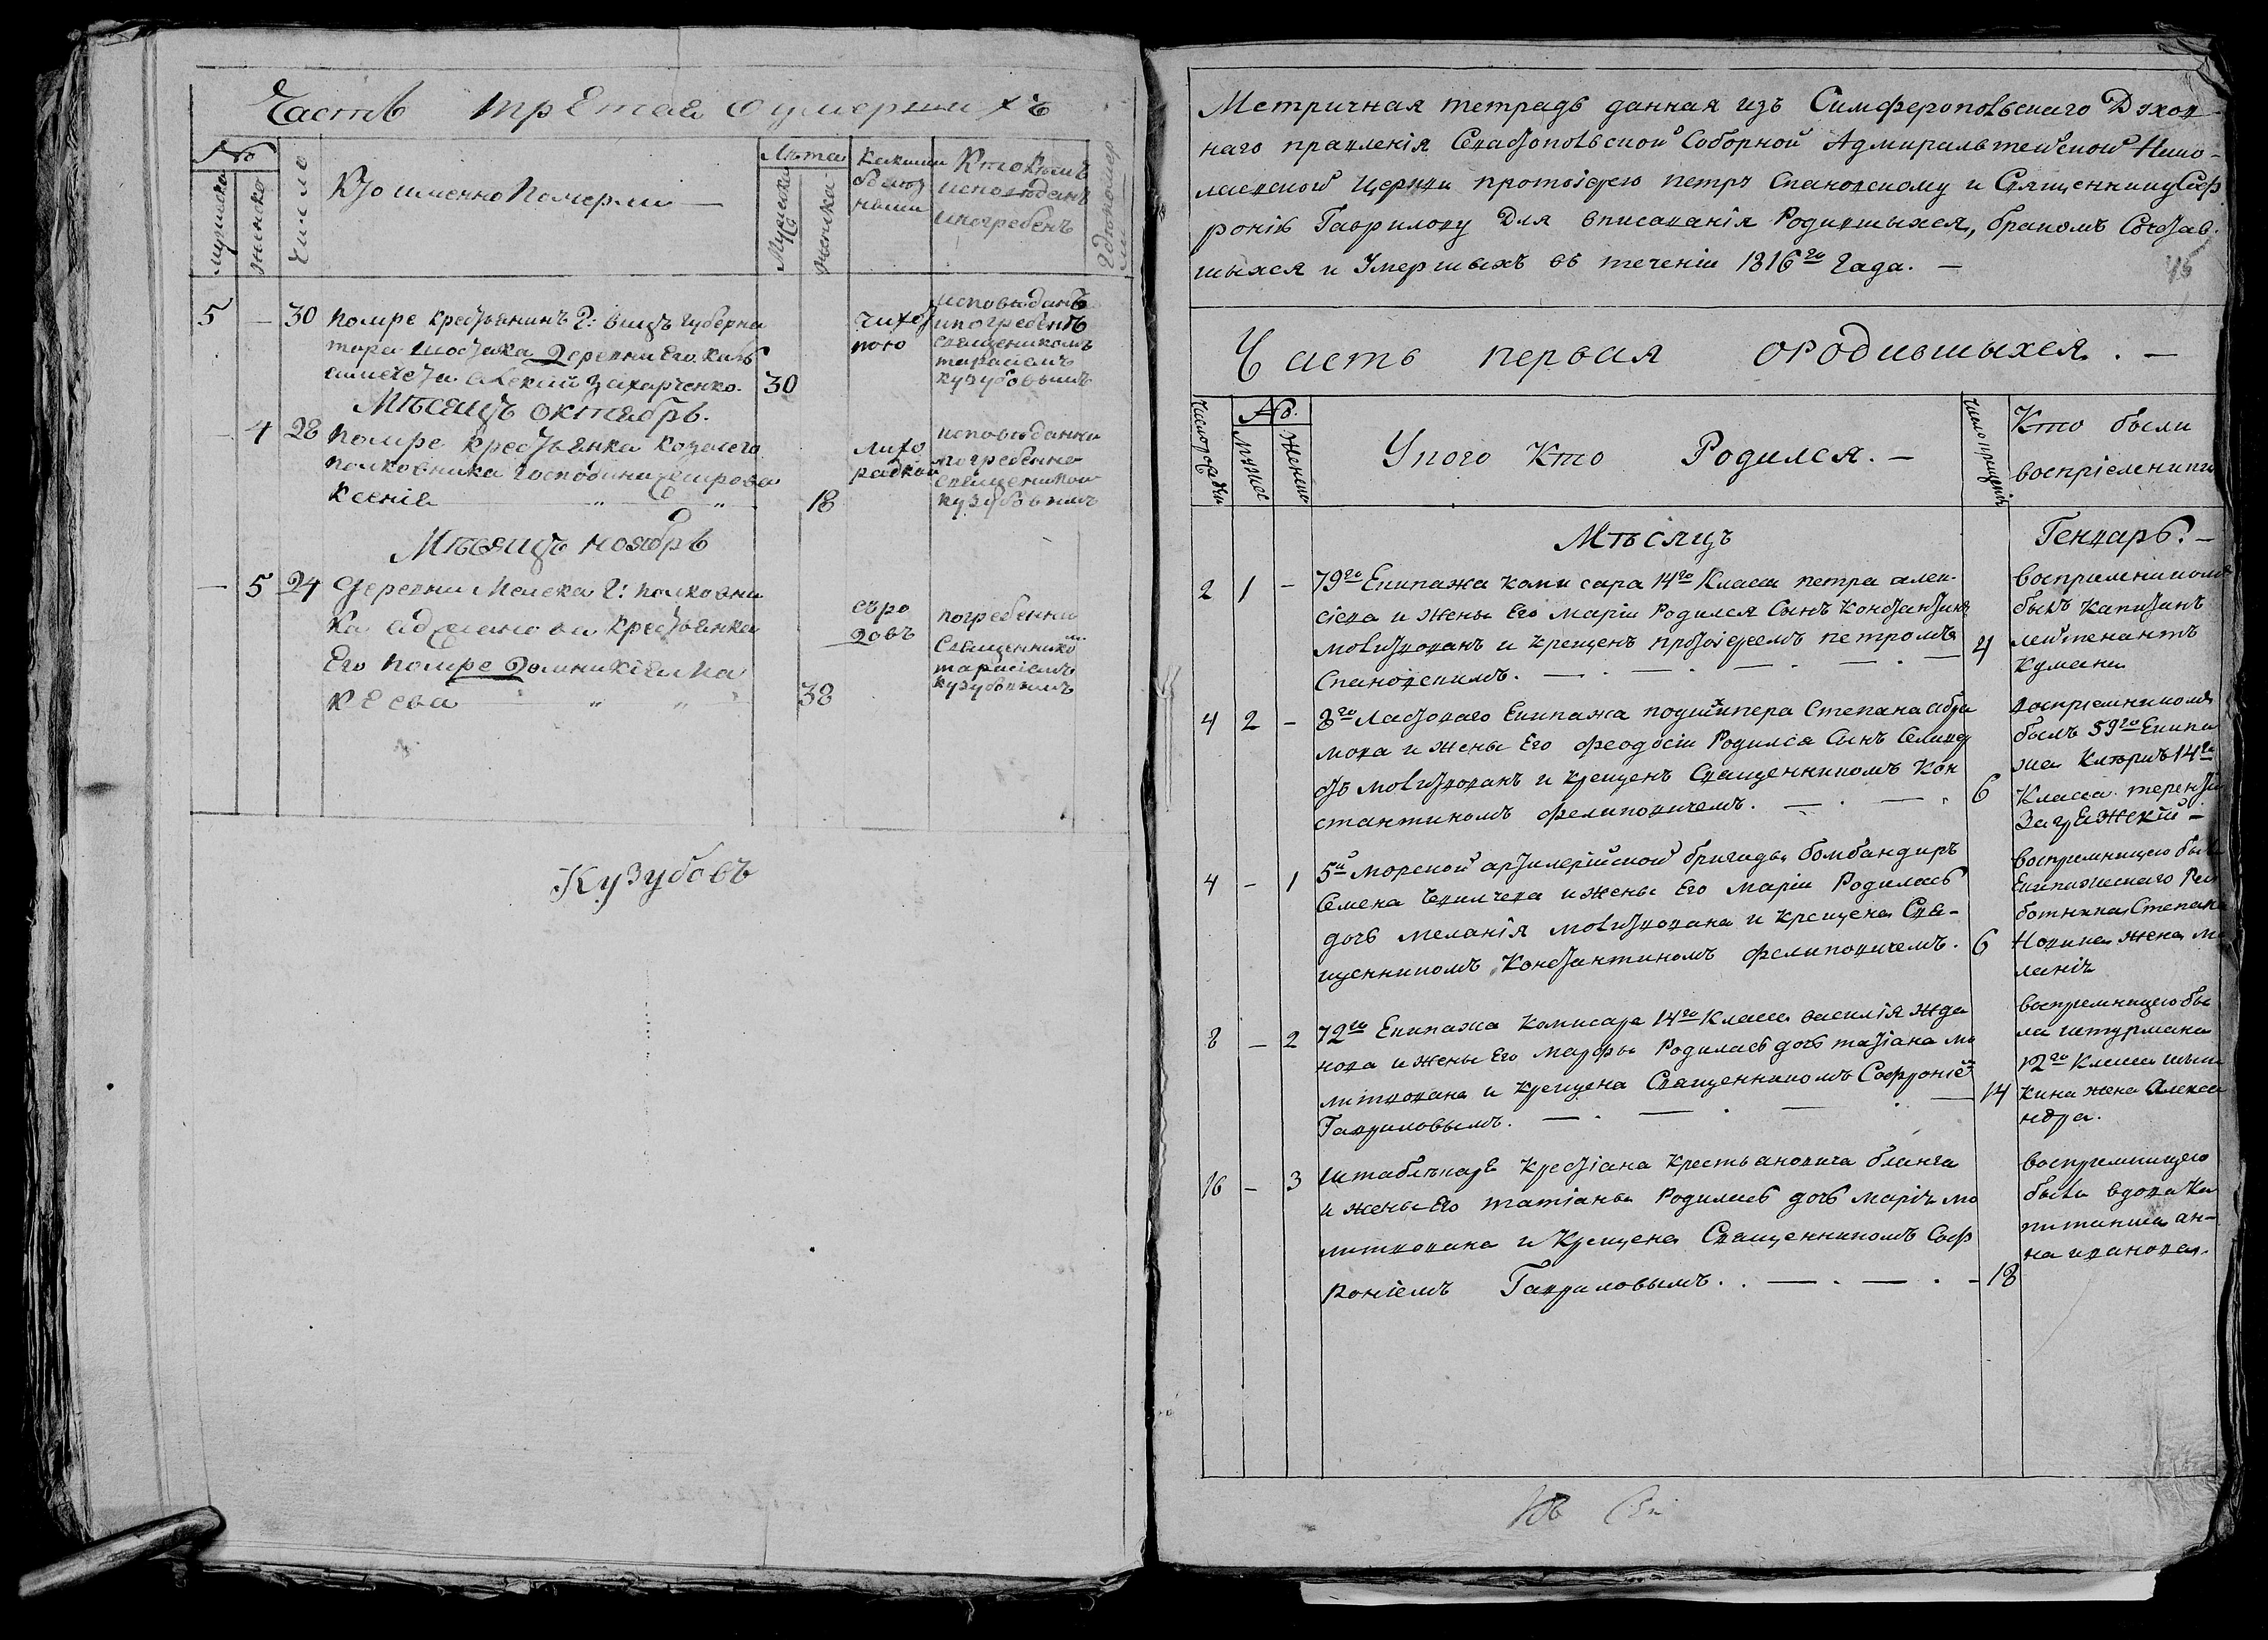 Часть третая о умершихъ
№
мужска
женска
Число
Кто именно Померли —
Лѣта
Мужска
женска
Какими
болѣз
ньми
Кто кѣмъ
исповѣданъ
и погребенъ
5 — 30 помре крестьянинъ г: вицъ губерна
тора деревни Его
Захарченко. 30
чихот
кою
исповѣданъ
и погребенъ
священикомъ
тарасіемъ
кузубовымъ
Мѣсяцъ октябрь.
— 4 28 помре крестьянка
полковника господина
ксенія „ „ 18
лихо
радкой
исповѣданна
погребенна
священикомъ
кузубовымъ
Мѣсяцъ ноябрь
— 5 24 деревни г: полковни
ка крестьянка
Его помре
кеева „ „ 38
погребенна
Священнико
тарасіемъ
кузубовымъ
Кузубовъ
Метричная тетрадь данная изъ Симферопольскаго Духов
наго правленія Севастопольской Соборной Адмиралътейской Нико-
лаевской Церкви протоіерею петру Спановскому и Священнику Соф
ронію Гаврилову Для вписаванія Родившыхся, бракомъ Сочетав-
шыхся и Умершыхъ въ теченіи 1816го Года. —
Часть первая о родившыхся. —
Число
№.
Мужес
Женска
У кого Кто Родился. —
Число крещенія
Кто были
воспріемники
Мѣсяцъ Генварь. —
2 1 — 79го Екипажа коми сара 14го Класса петра алек-
сіева и жены Его маріи Родился Сынъ Константинъ
молитвованъ и крещенъ протоіереемъ петромъ 4
Спановскимъ. —
воспріемникомъ
былъ Капитанъ
лейтенантъ
Кумани
4 2 — 8го Ластоваго Екипажа подшкипера Степана абра
мова и жены Его феодосіи Родился Сынъ Селивес
тъ молитвованъ и крещенъ Священникомъ Кон
стантиномъ Фелиповичемъ. — 6
воспріемникомъ
былъ 59го Екипа
жа Клюрикъ 14го
Класса терентій
Загряжскій —
4 — 1 5й морской артилерійской бригады бомбандиръ
Семена и жены Его маріи Родилась
дочь меланія молитвована и крещена Свя-
щенникомъ Константиномъ фелиповичемъ. 6
воспріемницею была
Екипажескаго Рая
ботника Степана
Новика жена ме
ланія
8 — 2 72го Екипажа комисара 14го Класса василія жда
нова и жены Его марфы Родилась дочь татіана мо
литвована и крещена Священникомъ Софроніемъ
Гавриловымъ. — 14
воспріемницею бы
ла штурмана
12го Класса шыш
кина жена Алекса
ндра.
16 — 3 Штаблѣкаря Крестіана Крестьановича бланга
и жены Его татіаны Родилась дочь марія мо
литвована и Крещена Священникомъ Соф
роніемъ Гавриловымъ. . — 18
воспріемницею
была вдова Ка
питанша ан-
на иванова.